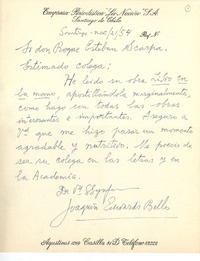 Empresa Periodística "La Nación" S.A.
Santiago de Chile
Santiago - nov/21/54 Ref. Nº
Sr don Roque Esteban Scarpa.
Estimado colega:
He leído su obra
la mano, apostillándola marginalmente,
como hago con todas las obras
interesantes e importantes. Aseguro a
Vd que me hizo pasar un momento
agradable y nutritivo. Me precio de
ser su colega en las letras y en
la Academia.
De Vd
Joaquín Edwards Bello
Agustinas 1269 Casilla 81-D Teléfono 82222